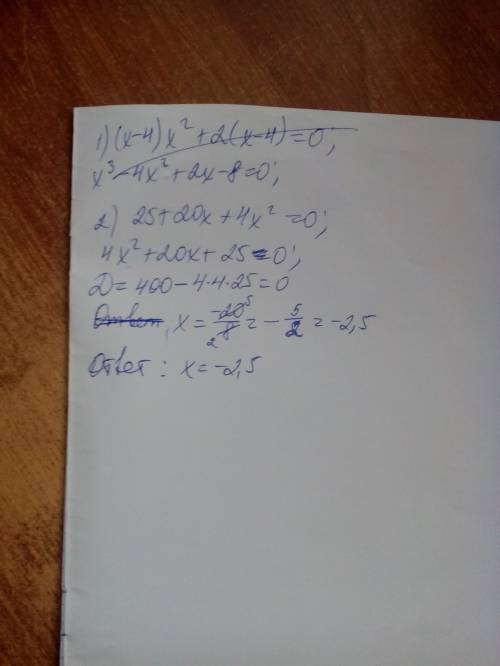 1) (x-4)x² + 2(x-4) = 0;
x³ - 4x² + 2x - 8 = 0;
2) 25 + 20x + 4x² = 0;
4x² + 20x + 25 = 0;
D = 400 - 4·4·25 = 0
Ответ, x = -20 5 / 2 8 = - 5/2 = -2,5
Ответ: x = -2,5